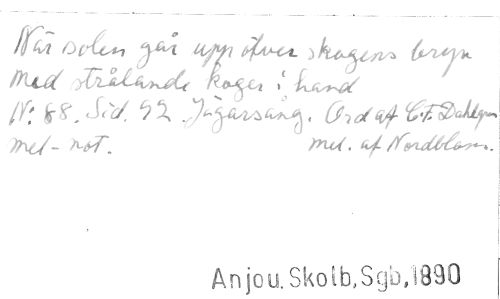 När solen går upp öfver skogens bryn
med strålande koger i hand
N: 88. Sid. 92. Jägarsång. Ord af C.F. Dahlgren
mel-not. mel. af Nordblom.
Anjou, Skolb, Sgb, 1890